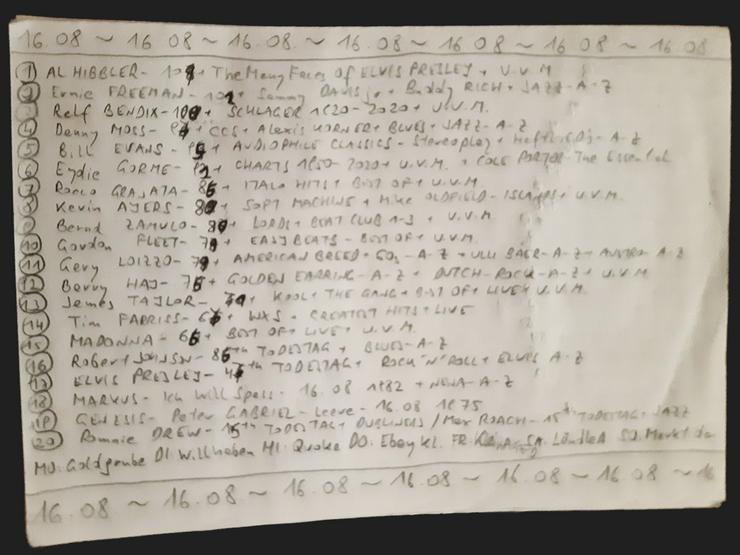 16.08 ~ 16 08 ~ 16.08 ~ 16.08 ~ 16 08 ~ 16 08 ~ 16 08
① AL HIBBLER - + The Many Faces of ELVIS PRESLEY + U.V.M
② Ernie FREEMAN - + Sammy DAVIS jr + Buddy RICH + JAZZ - A-Z
Ralf BENDIX - + SCHLAGER 1920-2020 + U.V.M.
④ Danny MOSS - + CCS + Alexis KORNER + BLUES + JAZZ - A-Z
⑤ Bill EVANS - + AUDIOPHILE CLASSICS - Stereoplay + A-Z
⑥ Eydie GORME - + CHARTS 1950-2020 + U.V.M. + COLE PORTER - The Essential
Rocco GRANATA - 86 + ITALO HITS + BEST OF + U.V.M
Kevin AYERS - + SOFT MACHINE + Mike OLDFIELD - ISLANDS + U.V.M.
Bernd ZAMULO - + LORDS + BEAT CLUB 1-3 + U.V.M
⑩ Gordon FLEET - + EASYBEATS - BEST OF + U.V.M.
⑪ Gary LOIZZO - + AMERICAN BREED + 60s - A-Z + ULLI BAER - A-Z + AUSTRO - A-Z
⑫ Barry HAY - 75 + GOLDEN EARRING - A-Z + DUTCH-ROCK - A-Z + U.V.M
⑬ James TAYLOR - + KOOL + THE GANG + BEST OF + LIVE + U.V.M.
⑭ Tim FARRISS - + INXS + GREATEST HITS + LIVE
⑮ MADONNA - 65 + BEST OF + LIVE + U.V.M.
⑯ Robert JOHNSON - 85th TODESTAG + BLUES - A-Z
ELVIS PRESLEY - th TODESTAG + ROCK'N'ROLL + ELVIS A-Z
⑱ MARKUS - Ich Will Spass - 16.08 1982 + NENA - A-Z
⑲ GENESIS - Peter GABRIEL - Leave - 16.08 1975
⑳ Ronnie DREW - 15th TODESTAG + DUBLINERS / Max ROACH - 15th TODESTAG + JAZZ
MO. Goldgrube DI. Willhaben MI. Quoka DO. Ebay Kl. FR. SA. Ländle SO. Markt
16.08 ~ 16.08 ~ 16.08 ~ 16.08 ~ 16.08 ~ 16.08 ~ 16